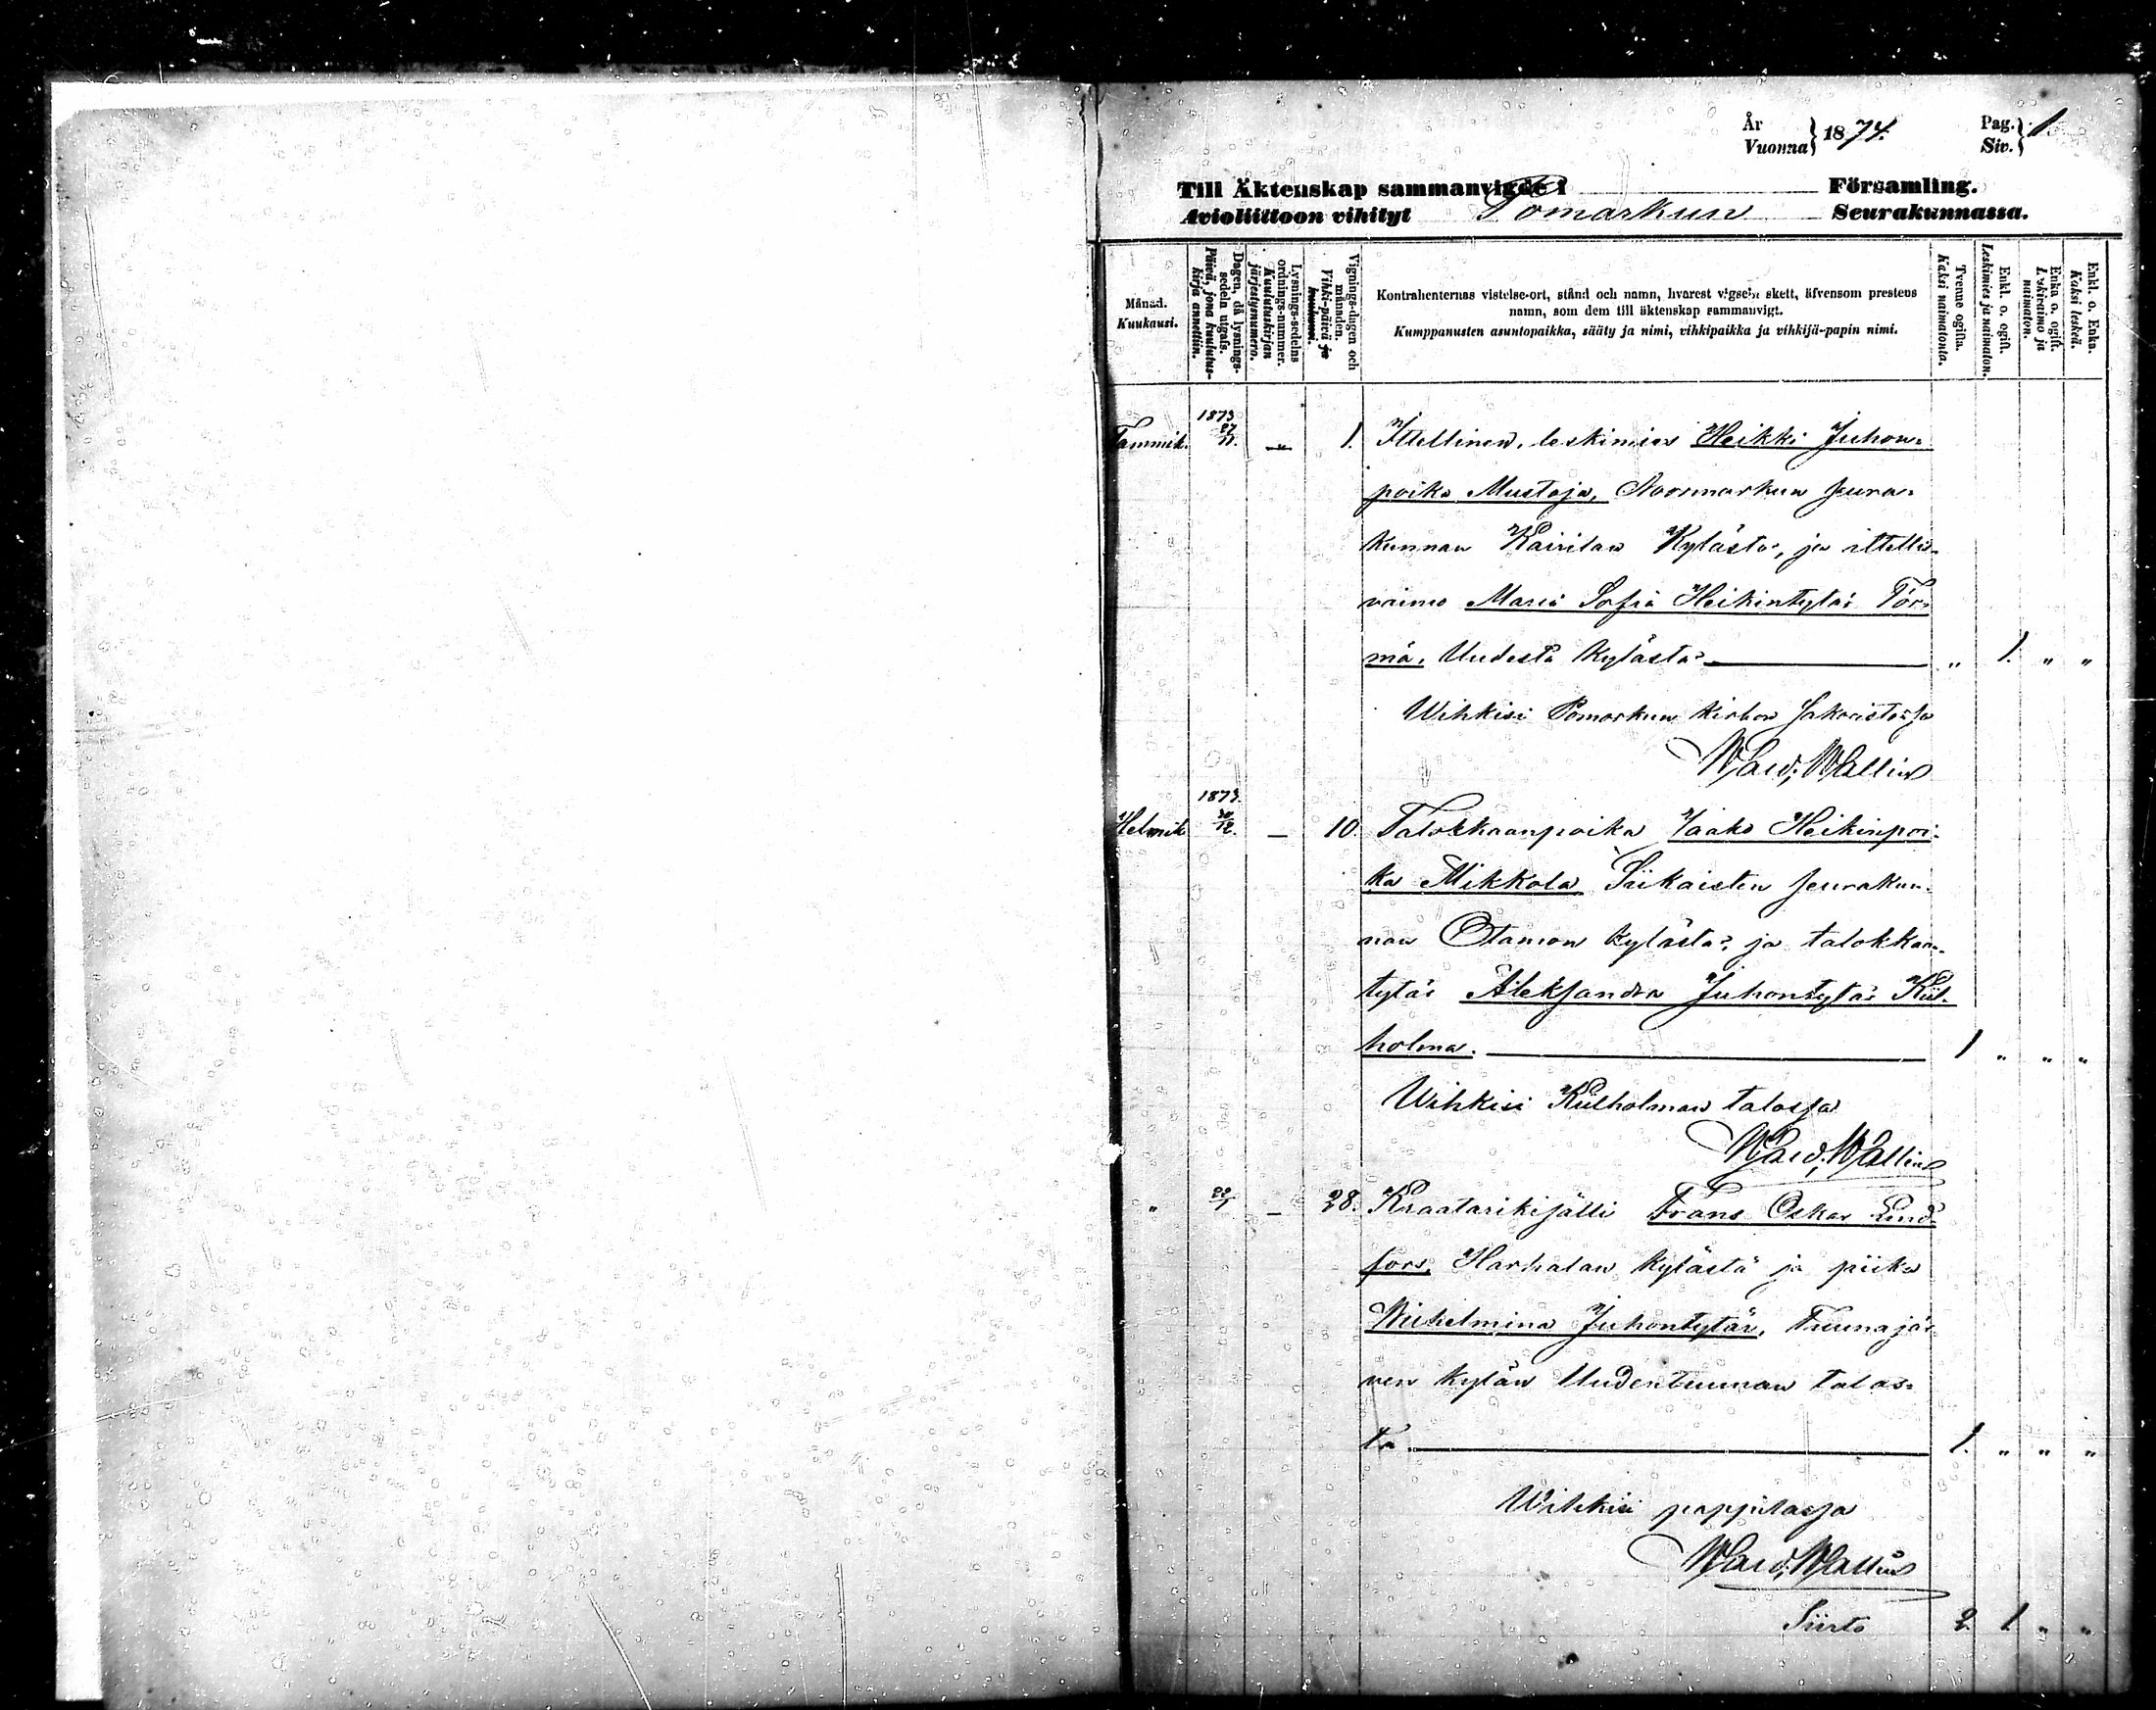 År
Vuonna } 1874. Pag.
Siv. } 1.
Till Äktenskap sammanvigde i Församling.
Avioliittoon vihityt Pomarkun Seurakunnassa.
Månad.
Kuukausi.
Dagen, då lysnings-
sedeln utgafs.
Päivä, jona kuulutus-
kirja annettiin.
Lysnings-sedelns
ordnings-nummer.
Kuulutuskirjan
järjestysnumero.
Vignings-dagen och
månaden.
Vihki-päivä ja
kuukausi.
Kontrahenternas vistelse-ort, stånd och namn, hvarest vigseln skett, äfvensom prestens
namn, som dem till äktenskap sammanvigt.
Kumppanusten asuntopaikka, sääty ja nimi, vihkipaikka ja vihkijä-papin nimi.
Tvenne ogifta.
Kaksi naimatonta.
Enkl. o. ogift.
Leskimies ja naimaton.
Enka o. ogift.
Leskivaimo ja
naimaton.
Enkl. o. Enka.
Kaksi leskeä.
1873
Tammik. 27/11. — 1. Ittellinen, leskimies Heikki Juhon-
poika Mustaja, Noormarkun seura-
kunnan Kairilan Kylästä, ja ittellis-
vaimo Maria Sofia Heikintytär Tör-
mä, Uudesta Kylästä — „ 1. „ „
Wihkisi Pomarkun kirkon sakaristossa
Wald. Wallin
1873.
Helmik. 30/12. — 10. Talokkaanpoika Jaako Heikinpoi-
ka Mikkola Siikaisten seurakun-
nan Otamon kylästä, ja talokkaan-
tytär Aleksandra Juhontytär Kiil-
holma. — 1 „ „ „
Wihkisi Kiilholman talossa
Wald. Wallin
„ 22/1 — 28. Kraatarikisälli Frans Oskar Lind-
fors, Harhalan kylästä ja piika
Wilhelmina Juhontytär, Tuunajär-
ven kylän Uudentuunan talos-
ta — 1. „ „ „
Wihkisi pappilassa
Wald. Wallin
Siirto 2. 1. „ „